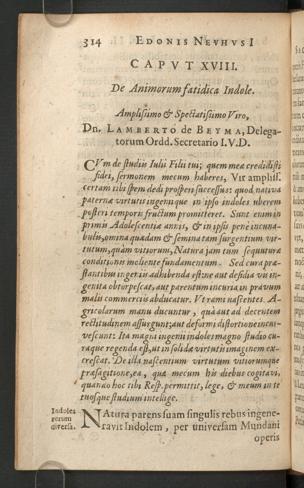 314 EDONIS NEVHVSI
CAPVT XVIII.
De Animorum fatidica Indole.
Amplissimo & Spectatissimo Viro,
Dn. LAMBERTO de BEYMA, Delega-
torum Ordd. Secretario I.V.D.
CVm de studiis Iulii Filii tui, quem mea credidisti
fidei, sermonem mecum haberes, Vir ampliss.
certam tibi spem dedi prosperi successus: quod nativa
paterna virtutis ingenique in ipso indoles uberem
posteri temporis fructum promitteret. Sunt enim in
primis Adolescentia annis, & in ipsis pene incuna-
bulis, omnia quadam & semina tam surgentium vir-
tutum, quàm vitiorum, Natura jam tum sequutura
conditionis moliente fundamentum. Sed cura præ-
stantibus ingeniis adhibenda est: ne aut desidia vis in-
genita obtorpescat, aut parentum incuria in pravum
malis commerciis abducatur. Vt rami nascentes. A-
gricolarum manu ducuntur, quà aut ad decentem
rectitudinem assurgunt; aut deformi distortione incur-
vescunt: Ita magni ingenii indoles magno studio cu-
raque regenda est, ut in solidæ virtutis imaginem ex-
crescat. De illa nascentium virtutum vitiorumque
præsagitione, ea, quæ mecum hîc diebus cogitavi,
quando hoc tibi Resp. permittit, lege, & meum in te
tuosque studium intellige.
Indoles
rerum
diversa.
NAtura parens suam singulis rebus ingene-
ravit Indolem, per universam Mundani
operis